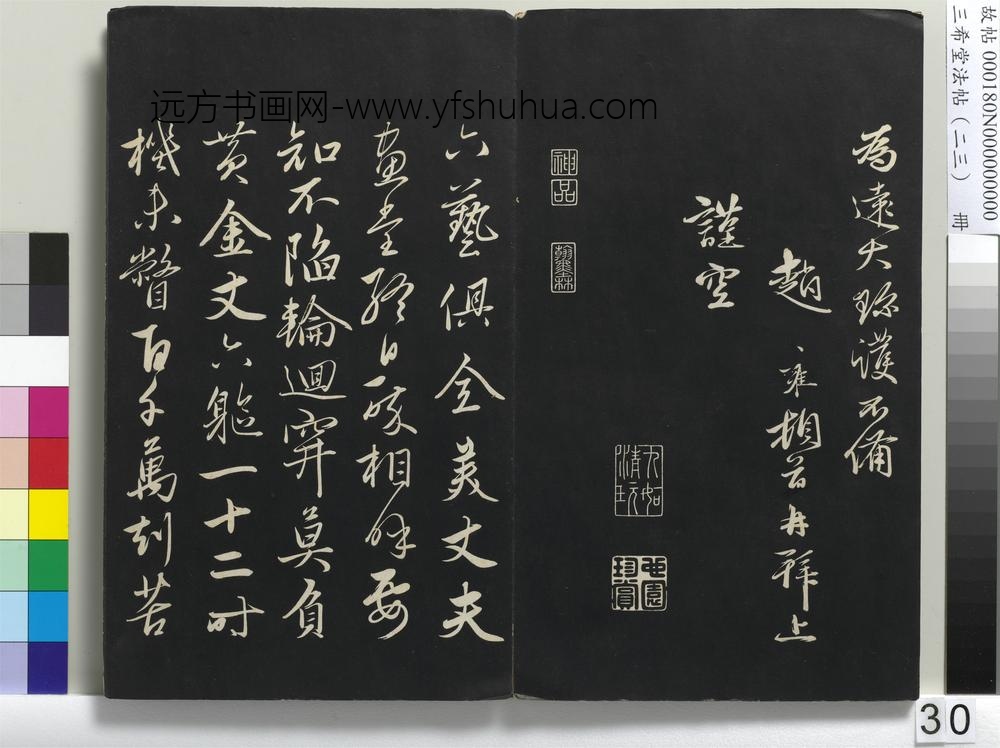 故帖 000180N000000000
三希堂法帖（二三） 冊
远方书画网-www.yfshuhua.com
為遠大珎護不備
趙 雍頓首再拜上
謹空
神品
翰墨林
六藝俱全美丈夫
畫堂終日啖相酥
知不陷輪迴穽莫負
黄金丈六軀一十二时
機未瞥百千萬刧苦
30